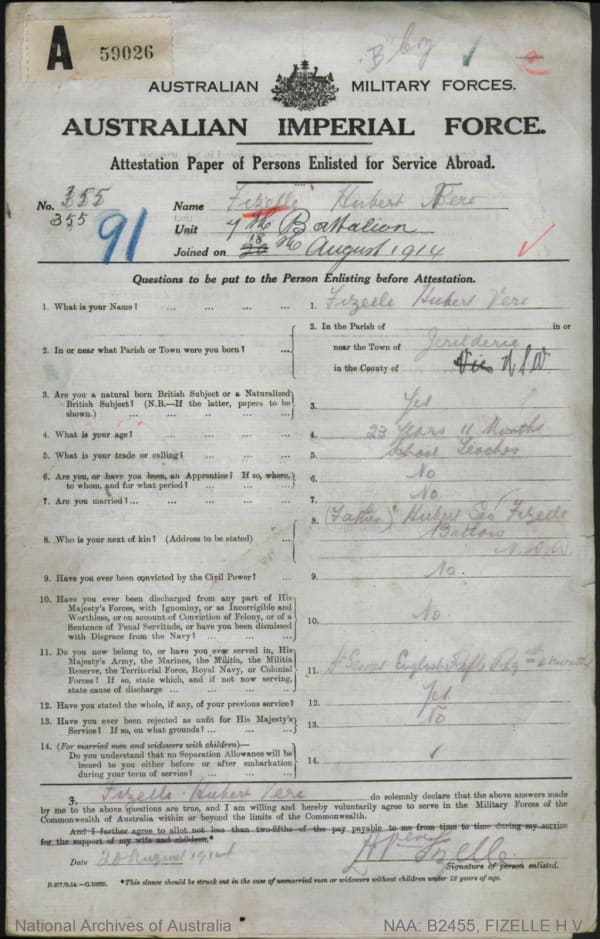 A 59026
AUSTRALIAN MILITARY FORCES.
AUSTRALIAN IMPERIAL FORCE.
Attestation Paper of Persons Enlisted for Service Abroad.
No. 355 Name Fizelle Hubert Vere
355 91 Unit 7th Battalion
Joined on 18 20 th August 1914
Questions to be put to the Person Enlisting before Attestation.
1. What is your Name? ... ... ... ... 1. Fizelle Hubert Vere
2. In or near what Parish or Town were you born? ... 2. In the Parish of in or
near the Town of Jerilderie
in the County of Vic N.S.W.
3. Are you a natural born British Subject or a Naturalized
British Subject? (N.B.—If the latter, papers to be
shown.) ... ... ... ... 3. Yes
4. What is your age? ... ... ... ... 4. 23 Years 11 Months
5. What is your trade or calling? ... ... ... 5. School Teacher
6. Are you, or have you been, an Apprentice? If so, where,
to whom, and for what period? ... ... ... 6. No
7. Are you married? ... ... ... ... 7. No
8. Who is your next of kin? (Address to be stated) ... 8. (Father) Hubert Geo Fizelle
Batlow
N.S.W.
9. Have you ever been convicted by the Civil Power? ... 9. No.
10. Have you ever been discharged from any part of His
Majesty's Forces, with Ignominy, or as Incorrigible and
Worthless, or on account of Conviction of Felony, or of a
Sentence of Penal Servitude, or have you been dismissed
with Disgrace from the Navy? ... ... ... 10. No.
11. Do you now belong to, or have you ever served in, His
Majesty's Army, the Marines, the Militia, the Militia
Reserve, the Territorial Force, Royal Navy, or Colonial
Forces? If so, state which, and if not now serving,
state cause of discharge ... ... ... ... 11. English Rifle Reg
12. Have you stated the whole, if any, of your previous service? 12. Yes
13. Have you ever been rejected as unfit for His Majesty's
Service? If so, on what grounds? ... ... 13. No
14. (For married men and widowers with children)—
Do you understand that no Separation Allowance will be
issued to you either before or after embarkation
during your term of service? ... ... ... 14.
I, Fizelle Hubert Vere do solemnly declare that the above answers made
by me to the above questions are true, and I am willing and hereby voluntarily agree to serve in the Military Forces of the
Commonwealth of Australia within or beyond the limits of the Commonwealth.
And I further agree to allot not less than two-fifths of the pay payable to me from time to time during my service
for the support of my wife and children.*
Date 20 August 1914 H Vere Fizelle
Signature of person enlisted.
*This clause should be struck out in the case of unmarried men or widowers without children under 18 years of age.
National Archives of Australia NAA: B2455, FIZELLE H V